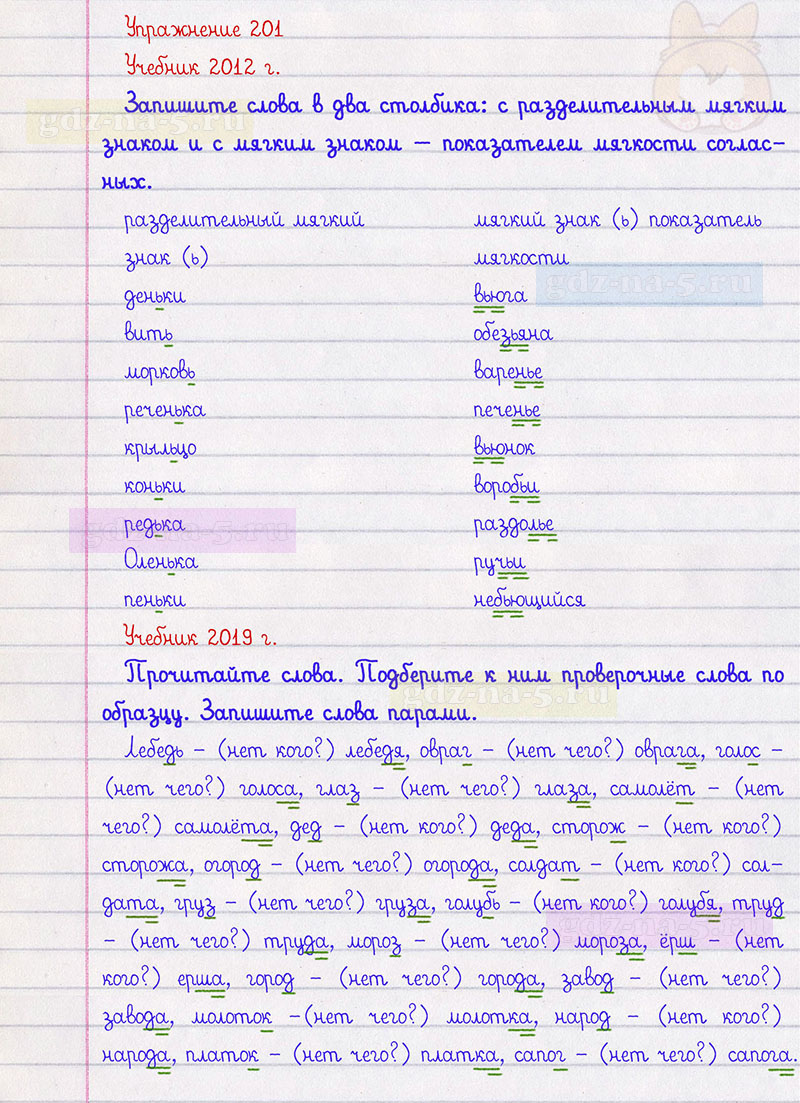 Упражнение 201
Учебник 2012 г.
gdz-na-5.ru
Запишите слова в два столбика: с разделительным мягким
знаком и с мягким знаком — показателем мягкости соглас-
ных.
разделительный мягкий мягкий знак (ь) показатель
знак (ь) мягкости
gdz-na-5.ru
деньки вьюга
вить обезьяна
морковь варенье
реченька печенье
крыльцо вьюнок
коньки воробьи
gdz-na-5.ru
редька раздолье
Оленька ручьи
пеньки небьющийся
Учебник 2019 г.
Прочитайте слова. Подберите к ним проверочные слова по
gdz-na-5.ru
образцу. Запишите слова парами.
Лебедь – (нет кого?) лебедя, овраг – (нет чего?) оврага, голос –
(нет чего?) голоса, глаз – (нет чего?) глаза, самолёт – (нет
чего?) самолёта, дед – (нет кого?) деда, сторож – (нет кого?)
сторожа, огород – (нет чего?) огорода, солдат – (нет кого?) сол-
дата, груз – (нет чего?) груза, голубь – (нет кого?) голубя, труд
gdz-na-5.ru
– (нет чего?) труда, мороз – (нет чего?) мороза, ёрш – (нет
кого?) ерша, город – (нет чего?) города, завод – (нет чего?)
завода, молоток –(нет чего?) молотка, народ – (нет кого?)
народа, платок – (нет чего?) платка, сапог – (нет чего?) сапога.